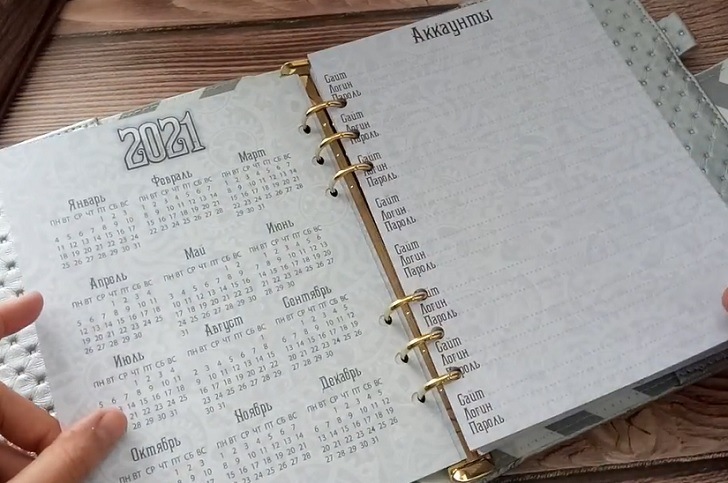 2021
Январь
ПН ВТ СР ЧТ ПТ СБ ВС
1 2 3
4 5 6 7 8 9 10
11 12 13 14 15 16 17
18 19 20 21 22 23 24
25 26 27 28 29 30 31
Февраль
ПН ВТ СР ЧТ ПТ СБ ВС
1 2 3 4 5 6 7
8 9 10 11 12 13 14
15 16 17 18 19 20 21
22 23 24 25 26 27 28
Март
ПН ВТ СР ЧТ ПТ СБ ВС
1 2 3 4 5 6 7
8 9 10 11 12 13 14
15 16 17 18 19 20 21
22 23 24 25 26 27 28
29 30 31
Апрель
ПН ВТ СР ЧТ ПТ СБ ВС
1 2 3 4
5 6 7 8 9 10 11
12 13 14 15 16 17 18
19 20 21 22 23 24 25
26 27 28 29 30
Май
ПН ВТ СР ЧТ ПТ СБ ВС
1 2
3 4 5 6 7 8 9
10 11 12 13 14 15 16
17 18 19 20 21 22 23
24 25 26 27 28 29 30
31
Июнь
ПН ВТ СР ЧТ ПТ СБ ВС
1 2 3 4 5 6
7 8 9 10 11 12 13
14 15 16 17 18 19 20
21 22 23 24 25 26 27
28 29 30
Июль
ПН ВТ СР ЧТ ПТ СБ ВС
1 2 3 4
Август
ПН ВТ СР ЧТ ПТ СБ ВС
1
2 3 4 5 6 7 8
9 10 11 12 13 14 15
16 17 18 19 20 21 22
23 24 25 26 27 28 29
30 31
Сентябрь
ПН ВТ СР ЧТ ПТ СБ ВС
1 2 3 4 5
6 7 8 9 10 11 12
13 14 15 16 17 18 19
20 21 22 23 24 25 26
27 28 29 30
Октябрь
ПН ВТ СР ЧТ ПТ СБ ВС
Ноябрь
ПН ВТ СР ЧТ ПТ СБ ВС
1 2 3 4 5 6 7
Декабрь
ПН ВТ СР ЧТ ПТ СБ ВС
1 2 3 4 5
6 7 8 9 10 11 12
13 14 15 16 17 18 19
20 21 22 23 24 25 26
27 28 29 30 31
Аккаунты
Сайт
Логин
Пароль
Сайт
Логин
Пароль
Сайт
Логин
Пароль
Сайт
Логин
Пароль
Сайт
Логин
Пароль
Сайт
Логин
Пароль
Сайт
Логин
Пароль
Сайт
Логин
Пароль